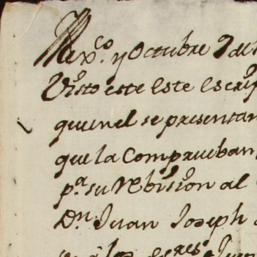 Mexco y Octubre 7 de
Visto este Este escrip
quenel se presentan
que la Comprueban
pa su Rebision al
Dn Juan Joseph